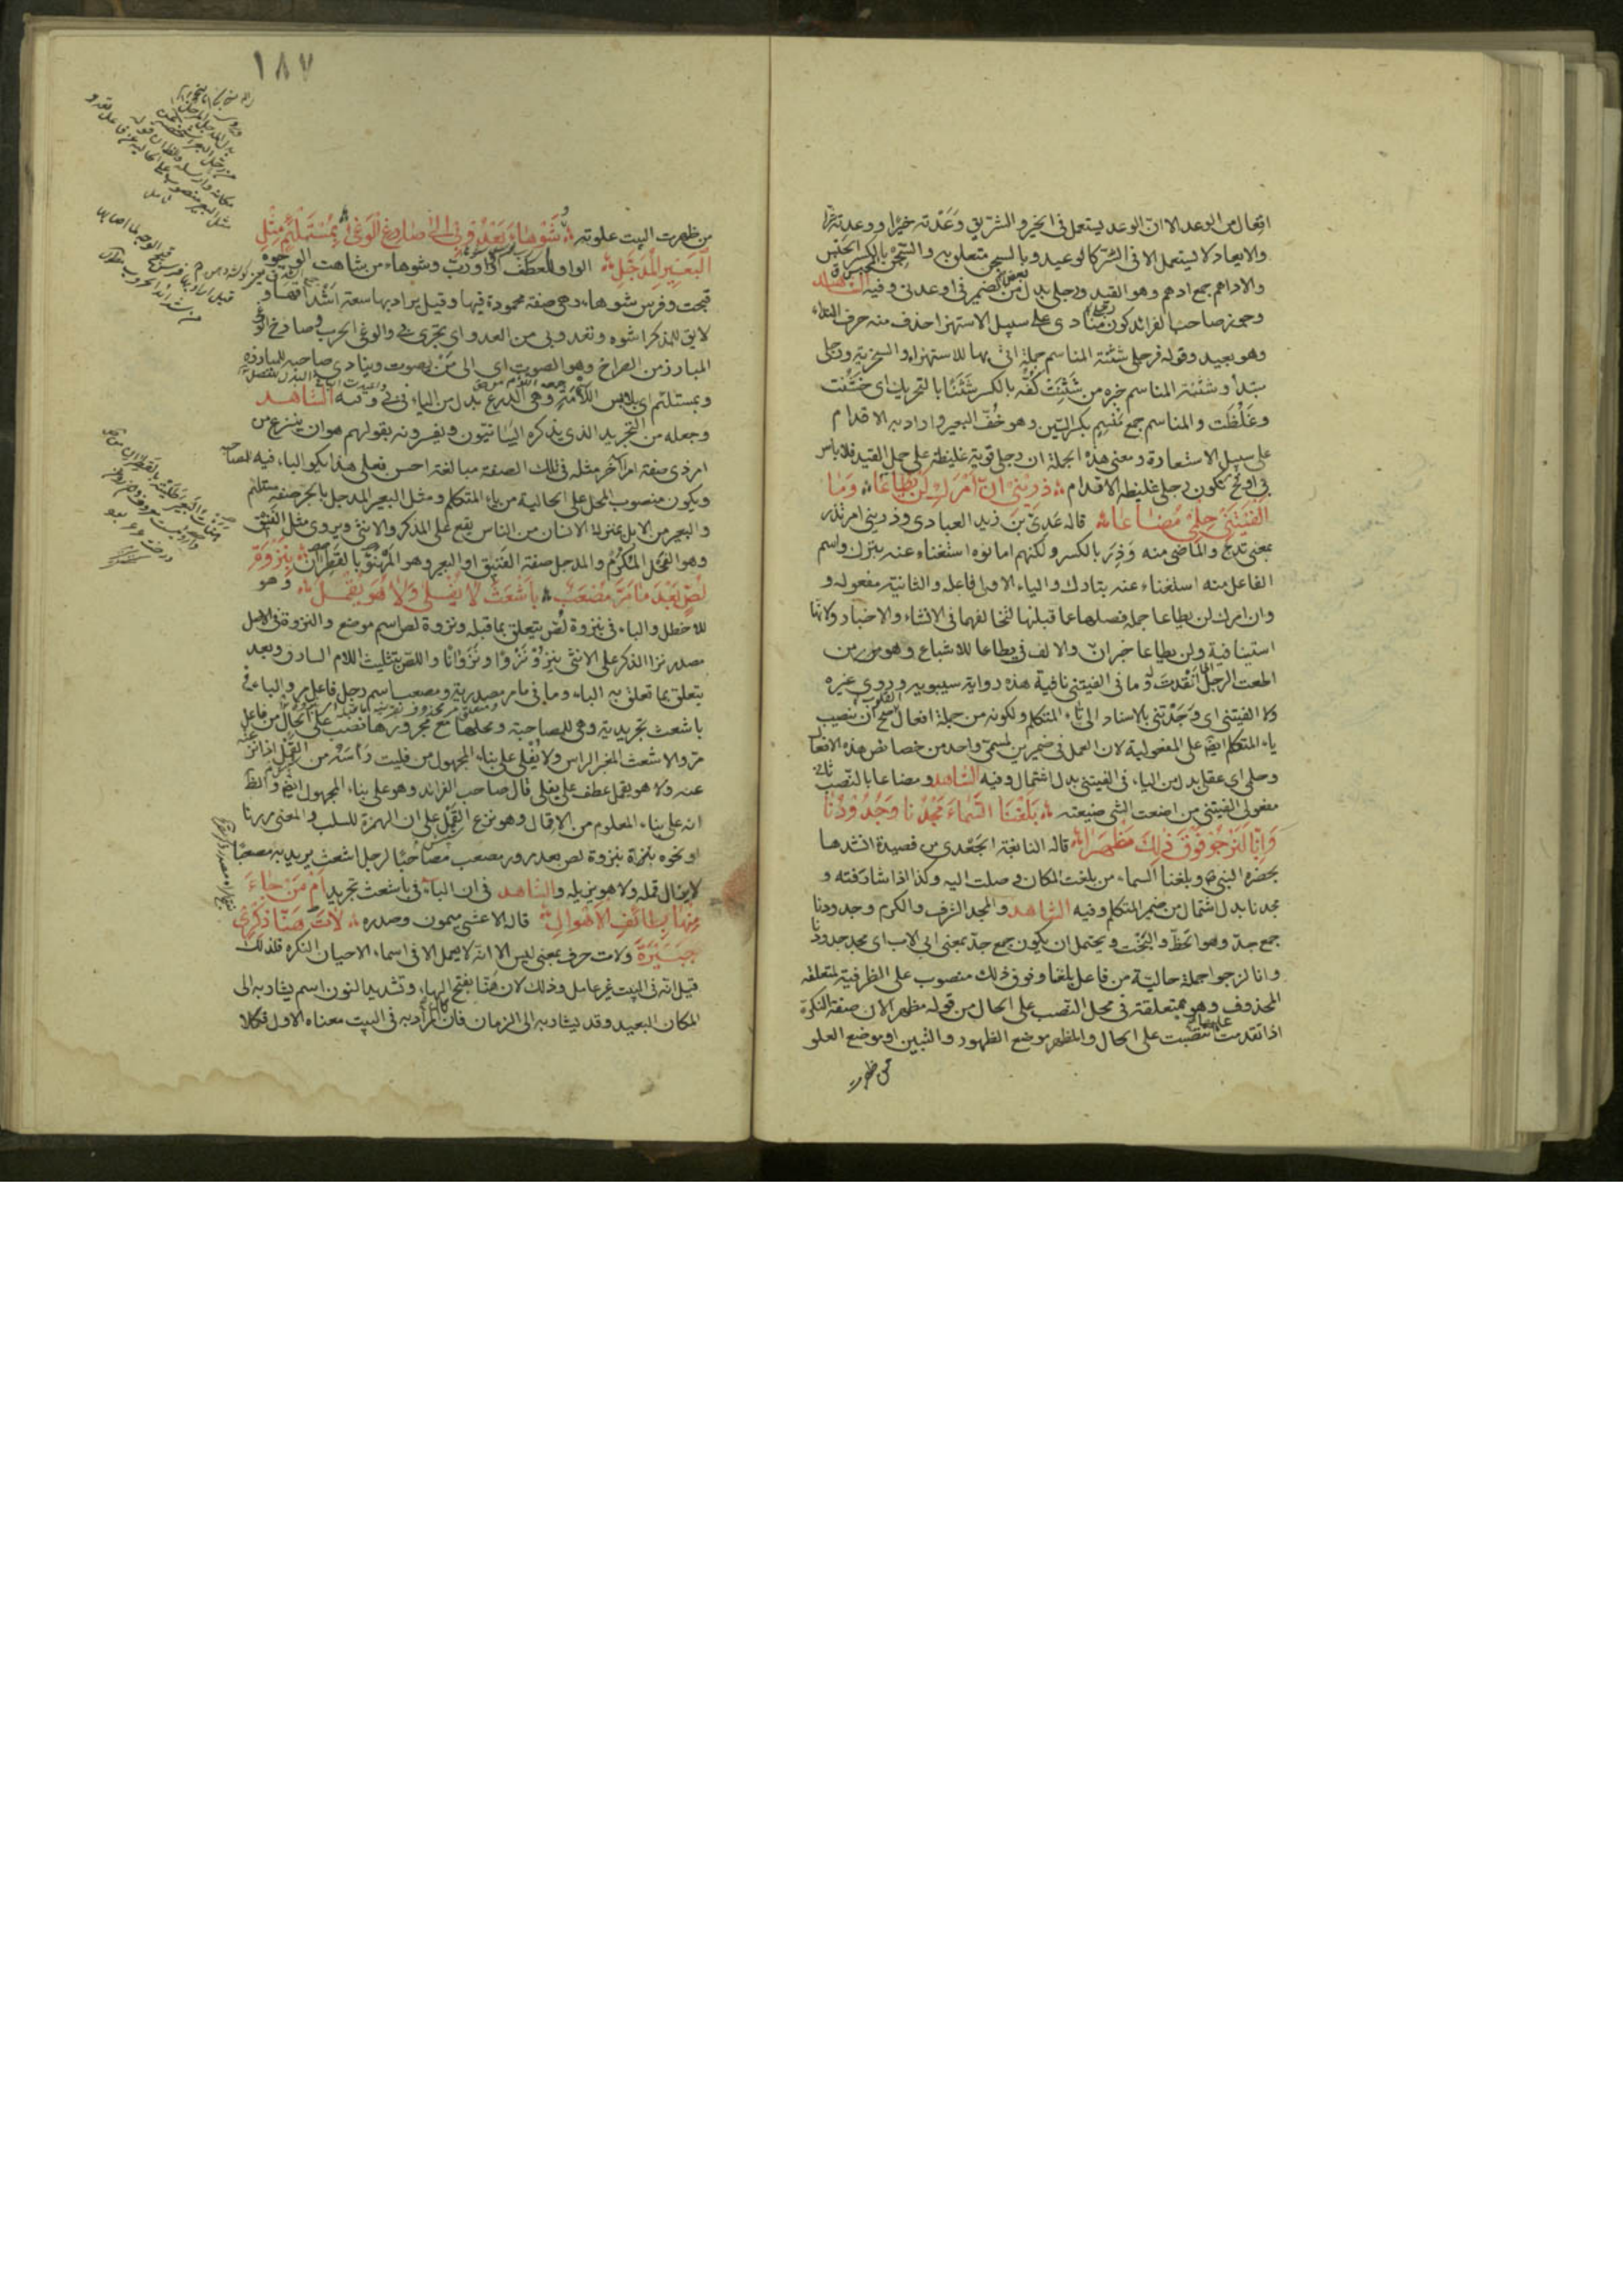 افعال من الوعد الا ان الوعد يستعمل فى الخير والشر يق وَعَدْته خيرًا ووعدته شرا
والايعاد لا يستعمل الا فى الشر كالوعيد وبالسجن متعلق به والسِّجْن بالكسر الحبس
والاداهم جمع ادهم وهو القيد ورجلى بدل بعض من الضمير فى اوعدنى وفيه الشاهد
وجوز صاحب الفرائد كون رجلى منادى على سبيل الاستهزاء حذف منه حرف النداء
وهو بعيد وقوله فرجلى شثنة المناسم جملة اتى بها للاستهزاء والسخرية ورجلى
مبتدأ وشثنة المناسم خبره من شَثِنَتْ كَفُّه بالكسر شَثَنًا بالتحريك اى خَشُنَت
وغَلُظَت والمناسم جمع مَنْسِم بكسر السين وهو خُفّ البعير واراد به الاقدام
على سبيل الاستعارة ومعنى هذه الجملة ان رجلى قوية غليظة على حمل القيد فلا باس
فى لكون رجلى غليظة الاقدام ذَرِيْنىْ اِنَّ اَمْرَكِ لَنْ يُطَاعَا وَمَا
اَلْفَيْتَنىْ حِلْمِىْ مُضَاعَا قاله عَدِىّ بن زيد العبادى وذرينى امر تذر
بمعنى تدع والماضى منه وَذِرَ بالكسر ولكنهم اماتوه استغناء عنه بترك واسم
الفاعل منه استغناء عنه بتارك والياء الاولى فاعله والثانية مفعوله و
وان امرك لن يطاعا جملة فصلها عما قبلها لتخالفهما فى الانشاء والاخبار ولانها
استينافية ولن يطاعا خبر ان والالف فى يطاعا للاشباع وهو من
اطعت الرجل اى انْقَدتُ له وما فى الفيتنى نافية هذه رواية سيبويه وروى غيره
ولا الفيتنى اى وَجَدْتنى بالاسناد الى تاء المتكلم ولكونه من جملة افعال القلوب صح ان تنصب
ياء المتكلم ايضا على المفعولية لان العمل فى ضميرين لمسمى واحد من خصائص هذه الافعال
وحلمى اى عقلى بدل من الياء فى الفيتنى بدل اشتمال وفيه الشاهد ومضاعا بالنصب ثانى
مفعولى الفيتنى من اضعت الشئ ضيعته بَلَغْنَا السَّمَاءَ مَجْدُنَا وَجُدُوْدُنَا
وَاِنَّا لَنَرْجُوْ فَوْقَ ذٰلِكَ مَظْهَرَا قاله النابغة الجَعْدى من قصيدة انشدها
بحضرة النبى وبلغنا السماء من بلغت المكان وصلت اليه وكذا اذا شارفته و
مجدنا بدل اشتمال من ضمير المتكلم وفيه الشاهد والمجد الشرف والكرم وجدودنا
جمع جد وهو الحَظّ والبَخْت ويحتمل ان يكون جمع جدّ بمعنى ابى الاب اى مجد جدودنا
وانا لنرجوا جملة حالية من فاعل بلغنا وفوق ذلك منصوب على الظرفية لمتعلقه
المحذوف وهو بمتعلقه فى محل النصب على الحال من قوله مظهرا لان صفة النكرة
اذا تقدمت عليها نصبت على الحال والمظهر موضع الظهور والتبين او موضع العلو
من ظهرت
١٨٧
من ظهرت البيت علوته وَشَوْهَاءَ تَعْدُوْ بىْ اِلٰى صَارِخِ الْوَغٰى بِمُسْتَلْئِمٍ مِثْلِ
الْبَعِيْرِ الْمُدَجَّلِ الواو للعطف او واو رُبّ وشوهاء من شاهت الوجوه
قبحت وفرس شوهاء وهى صفة محمودة فيها وقيل يراد بها سعة اشداقها و
لا يق للمذكر اشوه وتعدو بى من العدو اى تجرى بى والوغى الحرب وصارخ الوغى
المبارز من الصراخ وهو الصوت اى الى مَنْ يصوت وينادى صاحبه للمبارزة
وبمستلئم اى بلابس اللَّأْمَةِ وهى الدرع بدل من الياء فى بى وفيه الشاهد
وجعله من التجريد الذى يذكره البيانيون ويفسرونه بقولهم هو ان ينتزع من
امر ذى صفة امر اخر مثله فى تلك الصفة مبالغة احسن فعلى هذا يكون الباء فيه للمصاحبة
ويكون منصوب المحل على الحالية من ياء المتكلم ومثل البعير المدجل بالجر صفة مستلئم
والبعير من الابل بمنزلة الانسان من الناس يقع على المذكر والانثى ويروى مثل الفَنِيْق
وهو الفحل المُكرَمُ والمدجل صفة الفنيق او البعير وهو المَهْنُوّ بالقَطِران بِنَزْوَةِ
لِصٍّ بَعْدَ مَا مَرَّ مُصْعَبٌ بِاَشْعَثَ لَا يُفْلٰى وَلَا هُوَ يُقْمَلُ وهو
للاخطل والباء فى بنزوة لص يتعلق بما قبله ونزوة لص اسم موضع والنزوة فى الاصل
مصدر نزا الذكر على الانثى يَنْزُوْ نَزْوًا ونَزَوَانًا واللص بتثليث اللام السارق وبعد
يتعلق بما تعلق به الباء وما فى ما مر مصدرية ومصعب اسم رجل فاعل مر والباء فى
باشعث تجريدية وهى للمصاحبة ومحلها مع مجرورها نصب على الحال من فاعل
مر والاشعث المغبر الراس ولا يُفْلٰى على بناء المجهول من فليت رَأسَهُ من القمل اذا نزعته
عنه ولا هو يقمل عطف على يفلى قال صاحب الفرائد وهو على بناء المجهول ايضا والظ
انه على بناء المعلوم من الاقمال وهو نزع القَمْل على ان الهمزة للسلب والمعنى مررنا
او نحوه بنزوة لص بعد مرور مصعب مصاحبًا لرجل اشعث يريد به مصعبًا
لا يزال قمله ولا هو يزيله والشاهد فى ان الباء فى باشعث تجريد اَمْ مَنْ جَاءَ
مِنْهَا بِطَائِفِ الْاَهْوَالِ قاله الاعشى ميمون وصدره لَاتَ هَنَّا ذِكْرٰى
جُبَيْرَةَ ولات حرف بمعنى ليس الا انه لا يعمل الا فى اسماء الاحيان النكرة فلذلك
قيل انه فى البيت غير عامل وذلك لان هَنَّا بفتح الهاء وتشديد النون اسم يشار به الى
المكان البعيد وقد يشار به الى الزمان فان كان المراد به فى البيت معناه الاول فكلا